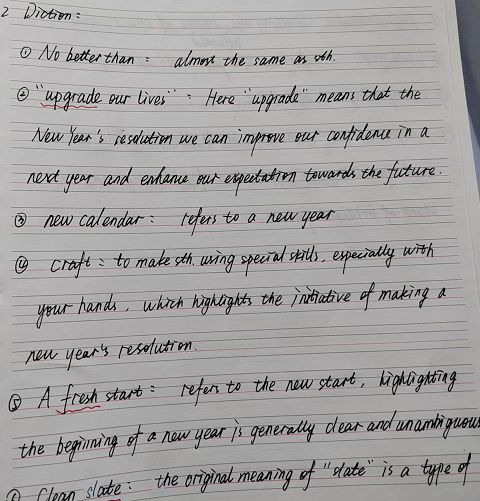 2 Diction:
① No better than: almost the same as sth.
② "upgrade our lives": Here "upgrade" means that the
New Year's resolution we can improve our confidence in a
next year and enhance our expectation towards the future.
③ new calendar: refers to a new year
④ craft: to make sth. using special skills, especially with
your hands, which highlights the initiative of making a
new year's resolution.
⑤ A fresh start: refers to the new start, highlighting
the beginning of a new year is generally clear and unambiguous
Clean slate: the original meaning of "slate" is a type of